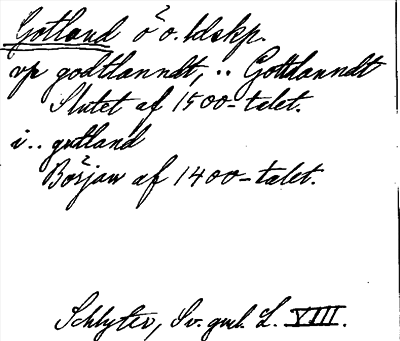 Gotland ö o. ldskp.
up godtlanndt, .. Gottlanndt
Slutet af 1500-talet.
i .. gutland
Början af 1400-talet.
Schlyter, Sv. gml. L. XIII.